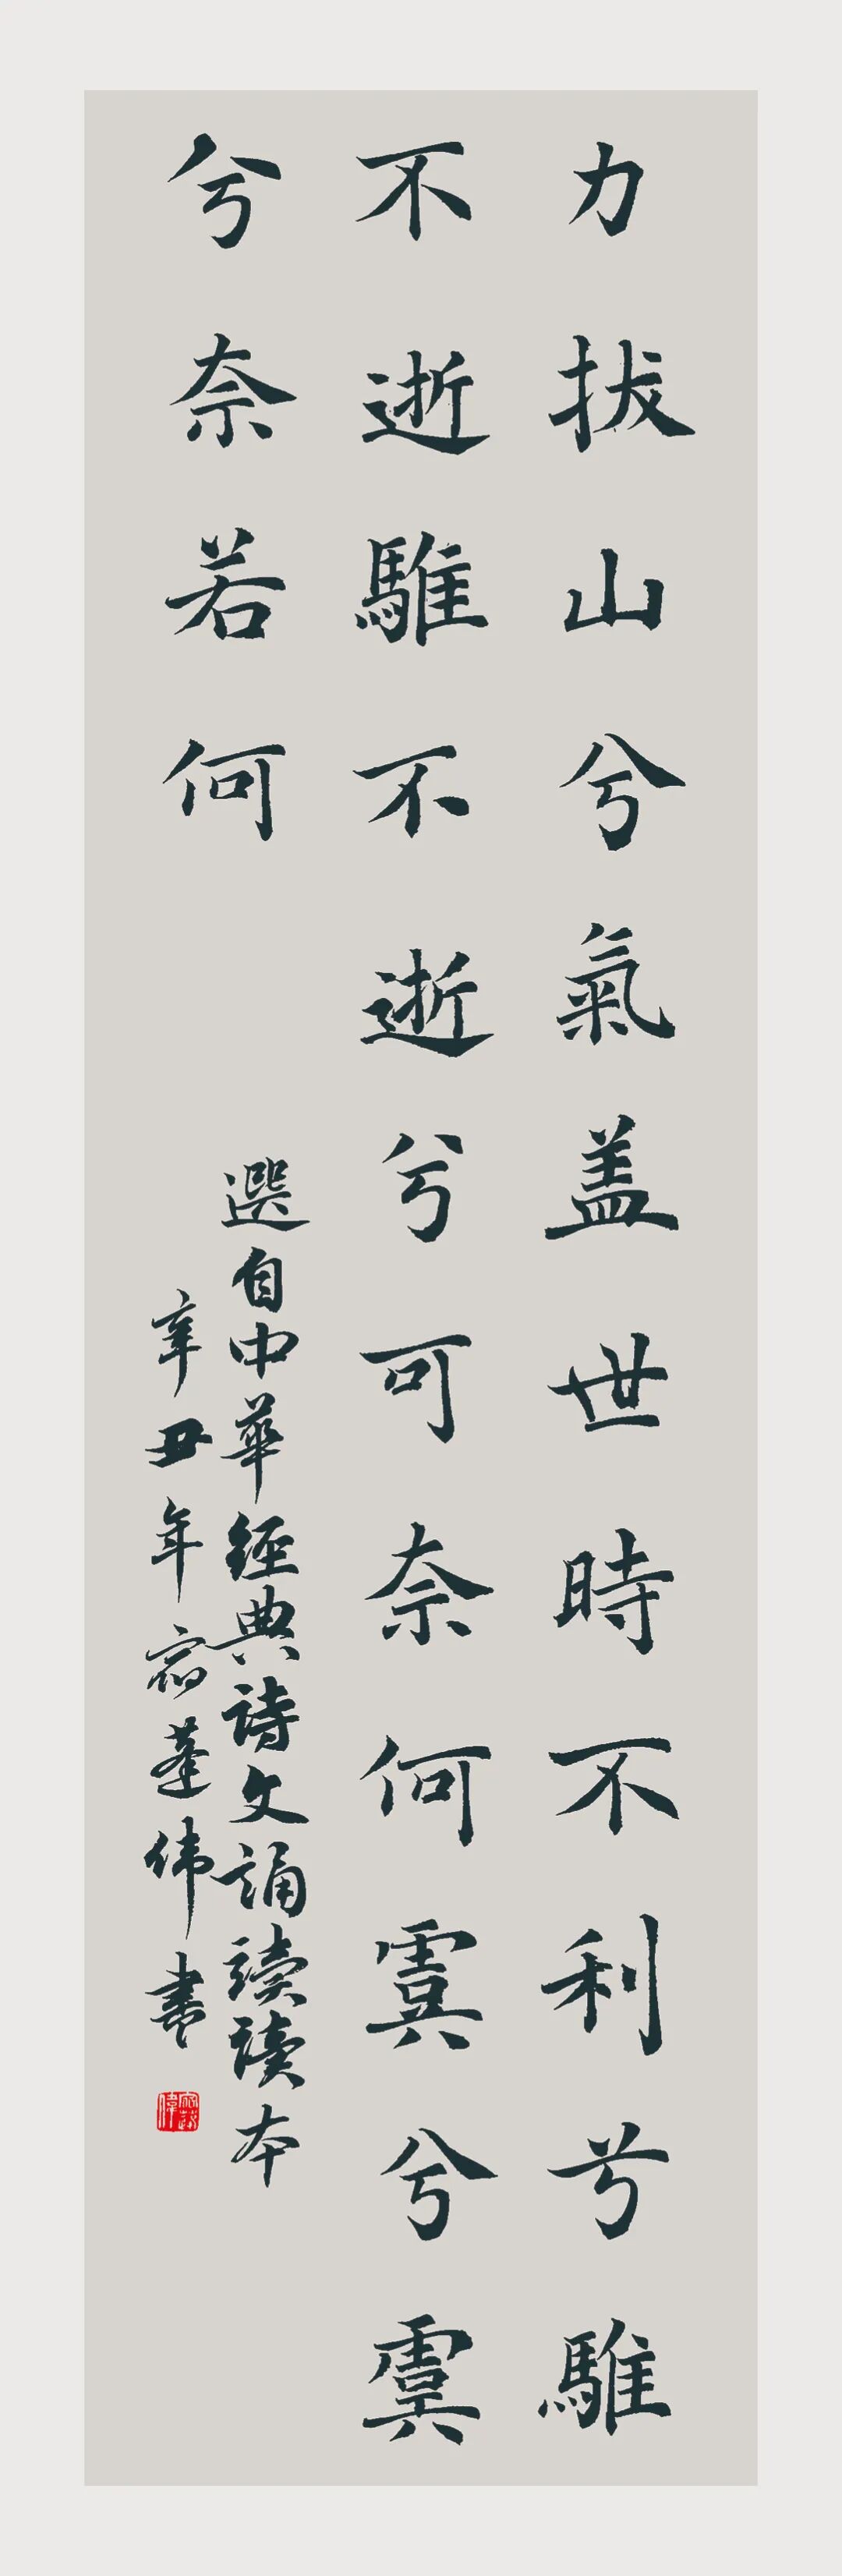 力拔山兮氣盖世時不利兮騅
不逝騅不逝兮可奈何虞兮虞
兮奈若何
選自中華經典詩文誦讀讀本
辛丑年宿蓬伟書